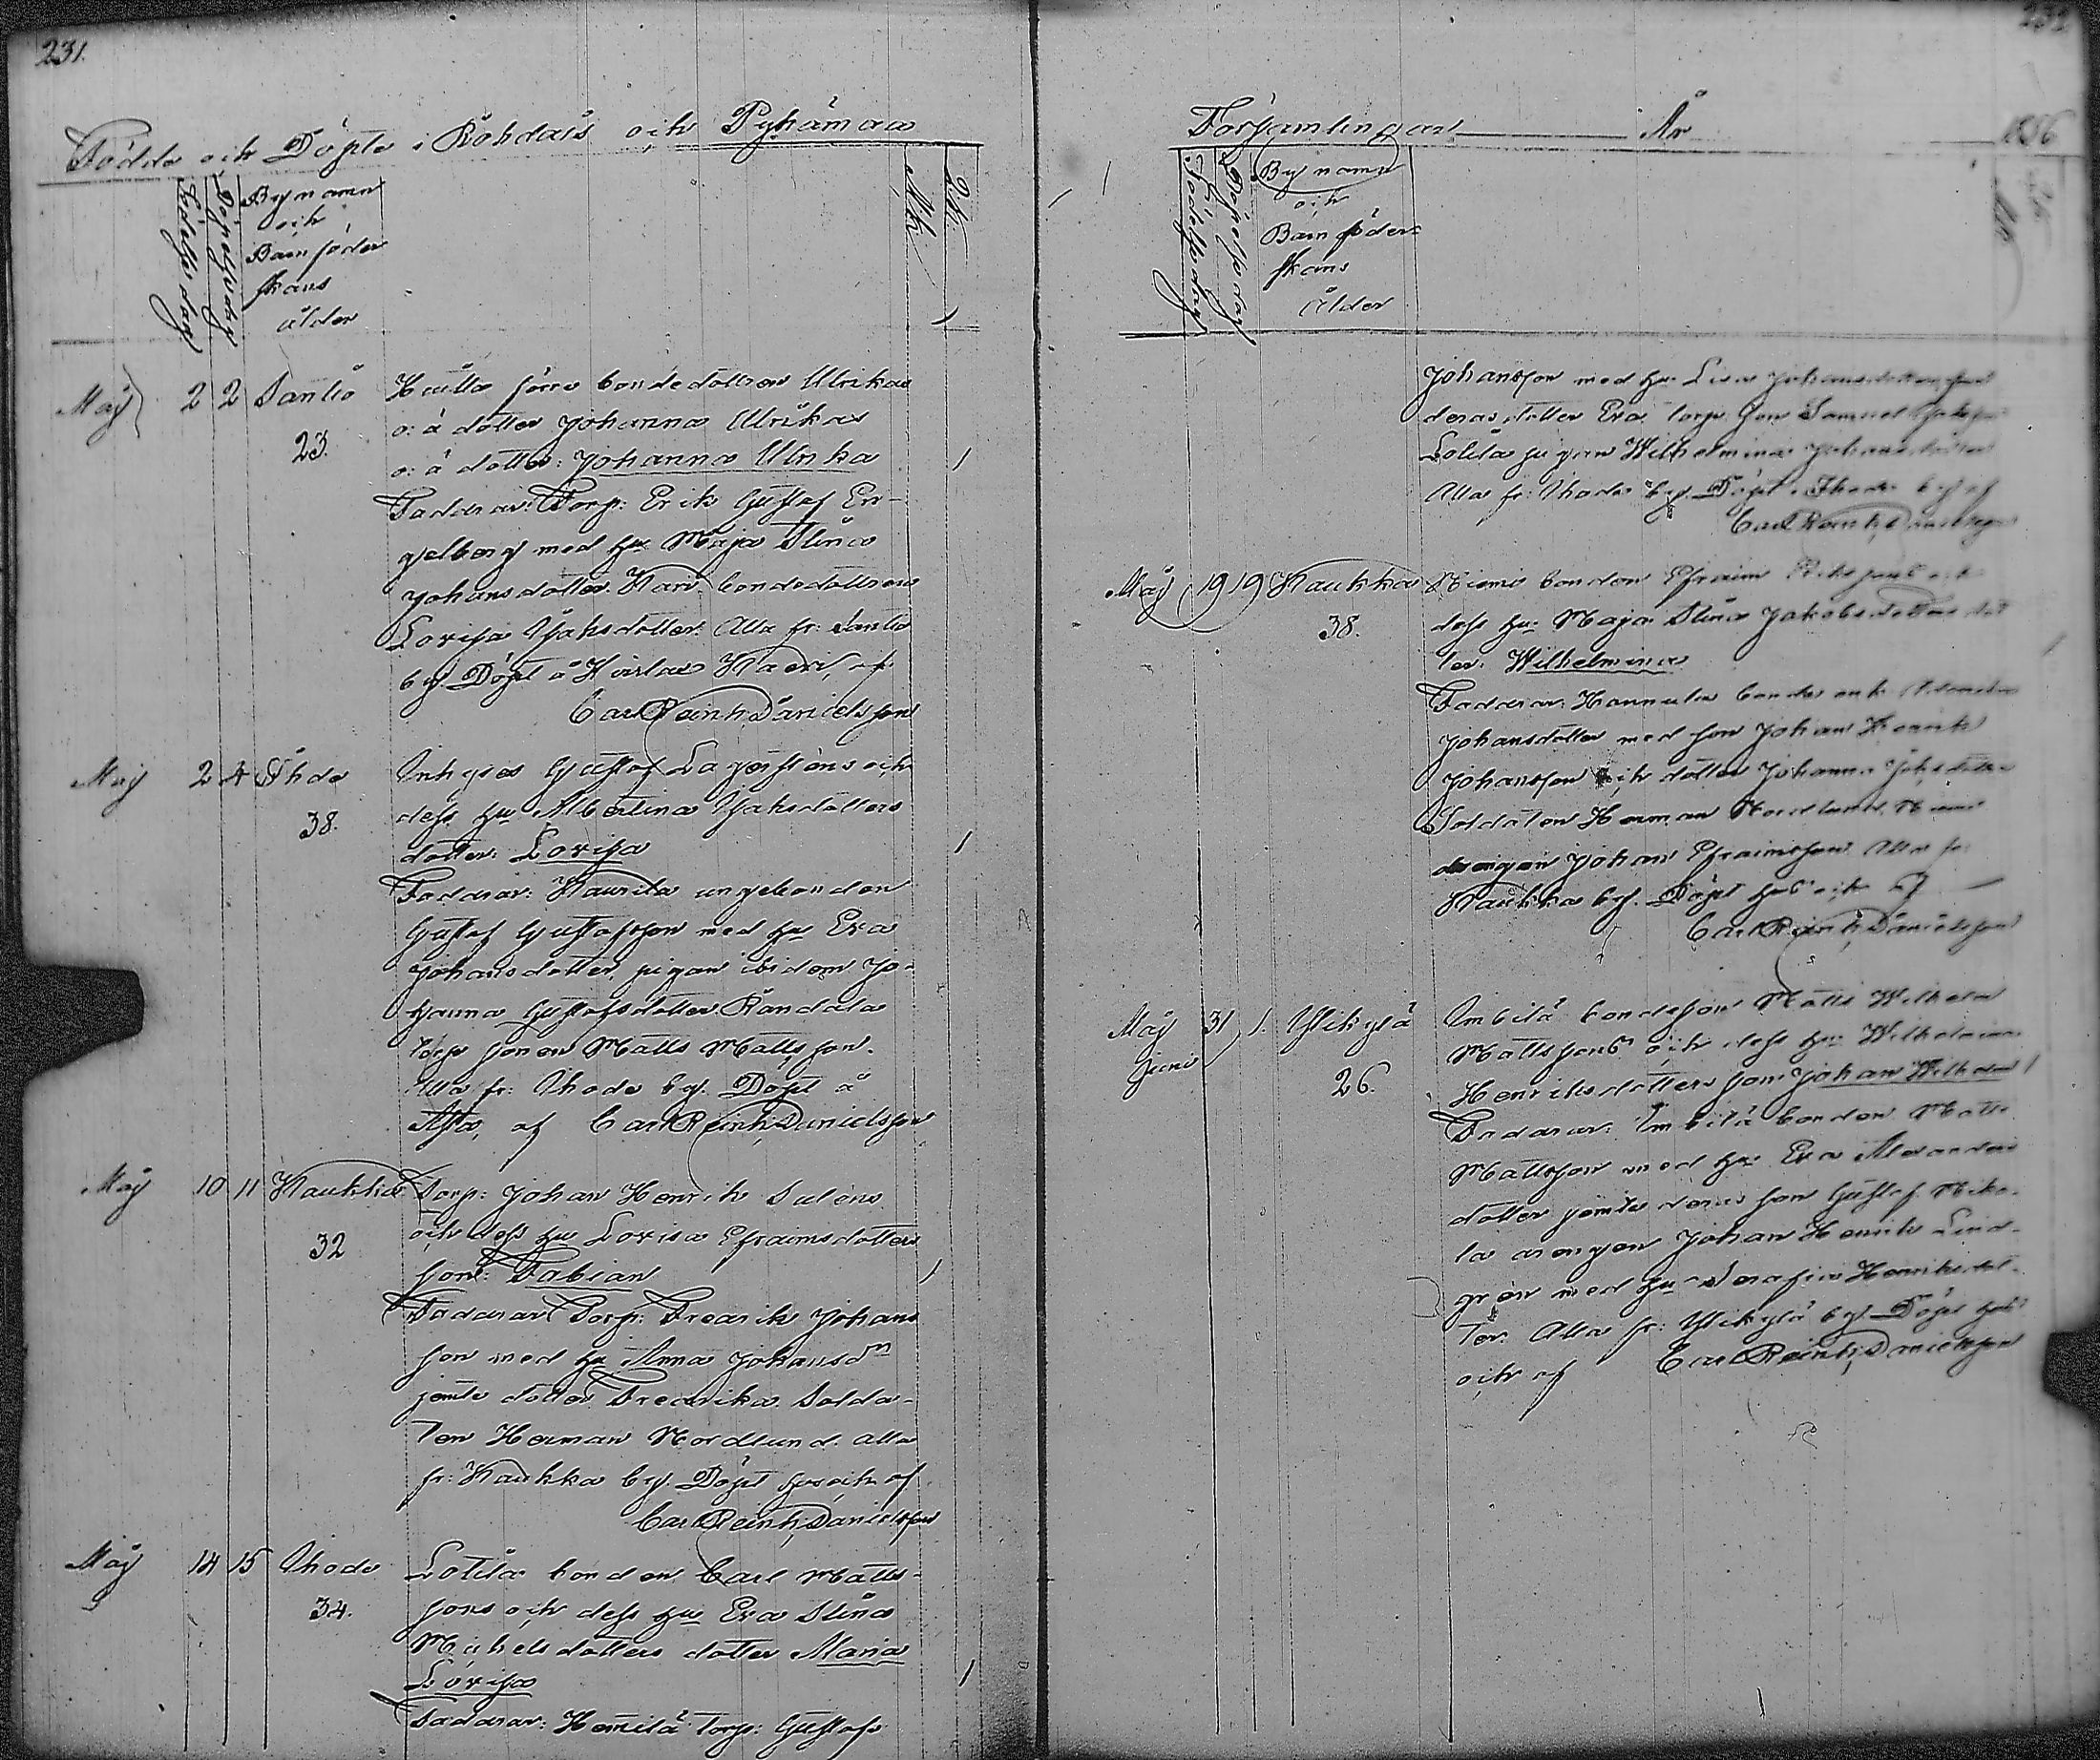 231.
Födde och Döpte i Rohdais och Pyhämaa
Födelse dag
Döpelse dag
Bynamn
och
Barnföder
skans
ålder
Mk.
Qk.
Maj 2 2 Santio
23.
förra bondedottren Ulrikas
o: ä dotter Johanna Ulrikas
o: ä dotter: Johanna Ulrika
Faddrar: Torp: Erik Gustaf En-
gelberg med hu Maja Stina
Johansdotter. Kari bondedottren
Lovisa Isaksdotter. Alla fr: Santio
by. Döpt å af
Carl Reinh. Danielsson
Maj 2 4 Ihode
38.
Inhyses Gustaf Lagerströms och
dess hu Albertina Isaksdotters
dotter: Lovisa
Faddrar: Kaurila ungebonden
Gustaf Gustafsson med hu Eva
Johansdotter, pigan ibidem Jo-
hanna Gustafsdotter. Randala
torp: sonen Matts Mattsson.
Alla fr: Ihode by. Döpt å
af Carl Reinh. Danielsson
Maj 10 11 Kaukka
32
Torp: Johan Henrik Saléns
och dess hu Lovisa Efraimsdotters
son: Fabian
Faddrar: Torp: Fredrik Johans
son med hu Anna Johansdr
jemte dotter Fredrika. Solda-
ten Herman Nordlund. Alla
fr: Kaukka by. Döpt hos och af
Carl Reinh. Danielsson
Maj 14 15 Ihode
34.
Lotila bonden Carl Matts-
sons och dess hu Eva Stina
Michelsdotters dotter Maria
Lovisa
Faddrar: Heinilä Torp: Gustafs
232
Församlingar År 1856
Födelse dag
Döpelse dag
Bynamn
och
Barnföder
skans
ålder
Johansson med hu Lisa Johansdotter,
deras dotter Eva. Torp: son Samuel
Lotila pigan Wilhelmina Johansdotter
Alla fr: Ihode by. Döpt i Ihode by af
Carl Reinh. Danielsson
Maj 19 19 Kaukka
38.
Niemi bonden Efraim och
dess hu Maja Stina Jakobsdotters dot
ter: Wilhelmina
Faddrar: Hannula bonde enk.
Johansdotter med son Johan Henrik
Johansson och dotter Johanna Johsdotter
Soldaten Herman Nordlund. Niemi
drengen Johan Efraimsson. Alla fr:
Kaukka by. Döpt hos och af
Carl Reinh. Danielsson
Maj 31 1. Ylikylä
Juni
26.
Imbilä bondeson Matts Wilhelm
Mattssons och dess hu Wilhelmina
Henriksdotters son: Johan Wilhelm
Faddrar: Imbilä bonden Matts
Mattsson med hu Eva Alexanders
dotter jemte deras son Gustaf. Miko-
la drengen Johan Henrik Lind-
grén med hu Serafia Henriksdot-
ter. Alla fr: Ylikylä by. Döpt hos
och af Carl Reinh. Danielsson